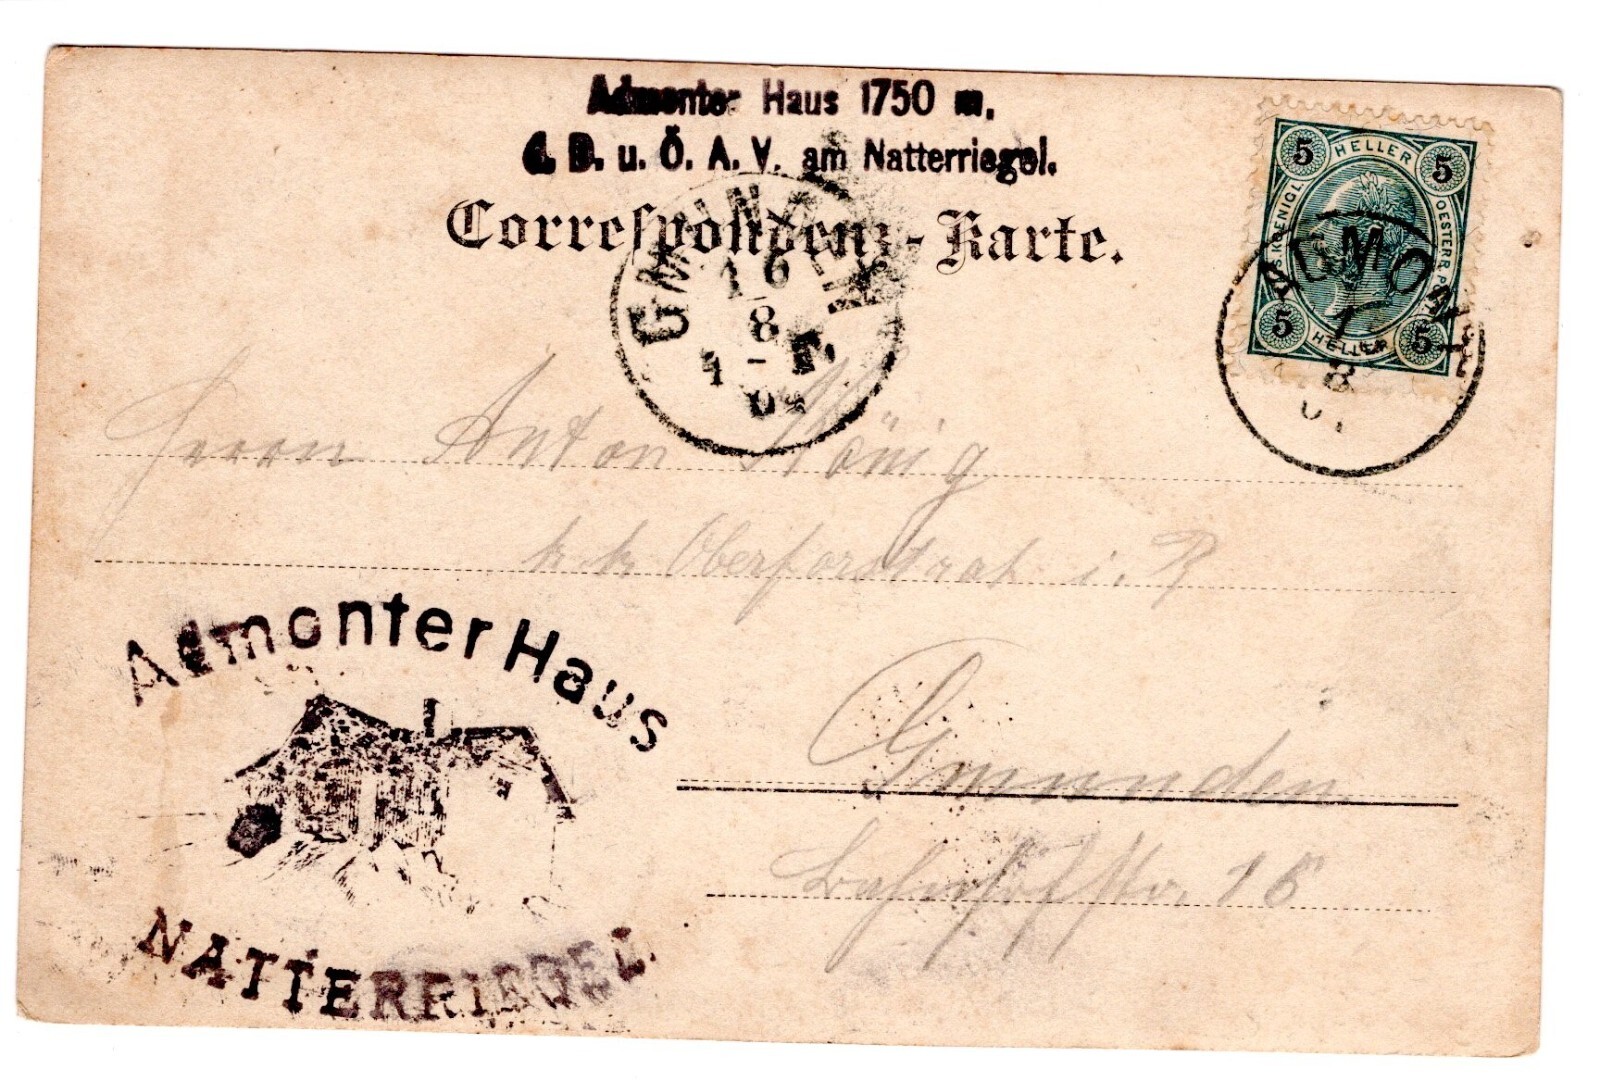 Admonter Haus 1750 m,
d. D. u. Ö. A. V. am Natterriegel.
Correspondenz-Karte.
5 HELLER 5
K.K. OESTERR. POST
5 HELLER 5
ADMONT
8
GMUNDEN
16
8
Herrn Anton König
k. k. Oberforstrat i. R
Gmunden
Bahnhofstr. 16
Admonter Haus
NATTERRIEGEL